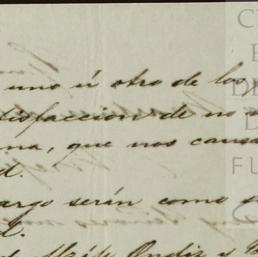 uno ú otro de los
tisfaccion de no
ma, que nos causa
d.
argo serán como s
d.
Ondiz y